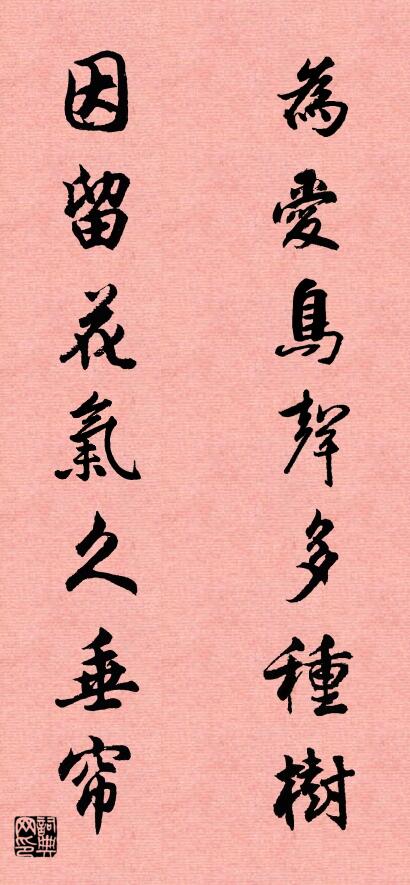 為愛鳥聲多種樹
因留花氣久垂帘
詞典网印